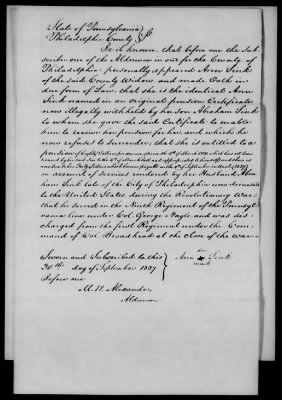 State of Pennsylvania
Philadelphia County } ss
Be it known, that before me the Sub-
scriber one of the Aldermen in and for the County of
Philadelphia personally appeared Ann Sink
of the said County Widow and made Oath in
due form of Law; that she is the identical Ann
Sink named in an original pension Certificate
now Illegally withheld by her son Abraham Sink
to whom she gave the said Certificate to enable
him to receive her pension for her and which he
now refuses to surrender; that she is entitled to a
pension of Eighty Dollars per annum
on account of services rendered by her Husband Abra-
ham Sink late of the City of Philadelphia now deceased
to the United States during the Revolutionary War
that he served in the Ninth Regiment of the Pennsyl-
vania line under Col. George Nagle and was dis-
charged from the first Regiment under the Com-
mand of Col. Broadhead at the close of the war
Sworn and Subscribed to this
30th day of September 1837
Before me
her
Ann x Sink
mark
M. H. Alexander
Alderman